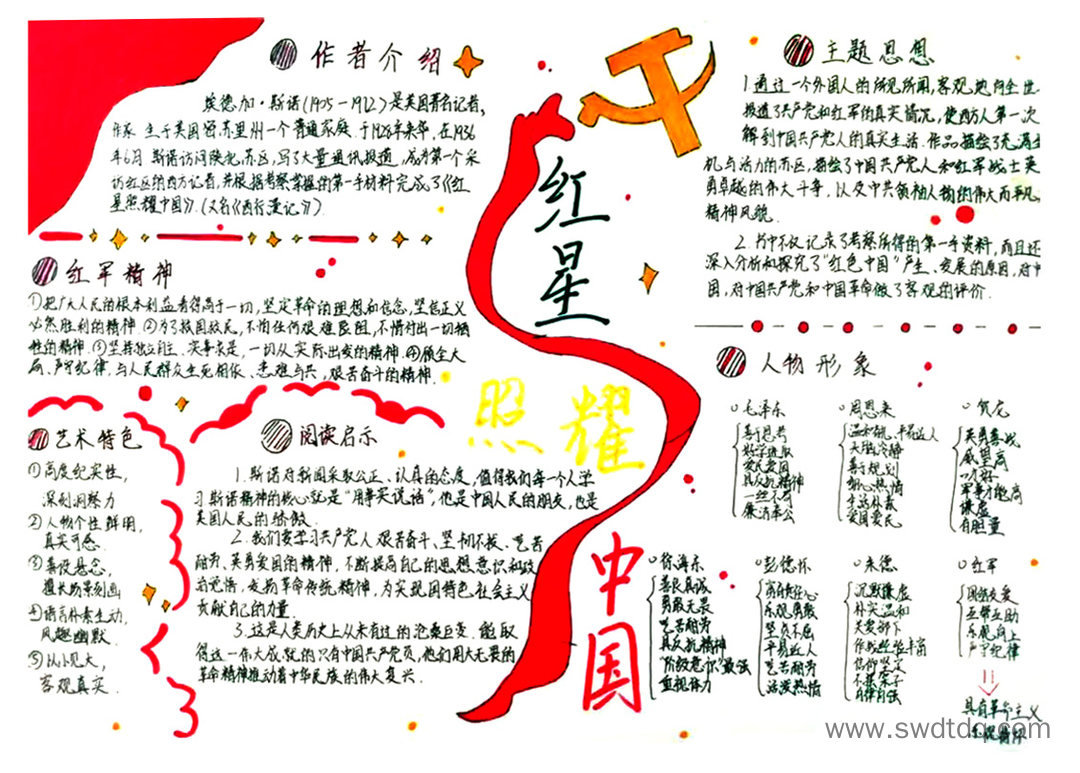 作者介绍
埃德加·斯诺(1905-1972)是美国著名记者,
作家.生于美国密苏里州一个普通家庭.于1928年来华,在1936
年6月 斯诺访问陕北苏区,写了大量通讯报道,成为第一个采
访红区的西方记者,并根据考察掌握的第一手材料完成了《红
星照耀中国》.(又名《西行漫记》).
红军精神
①把广大人民的根本利益看得高于一切,坚定革命的理想和信念,坚信正义
必然胜利的精神 ②为了救国救民,不怕任何艰难险阻,不惜付出一切牺
牲的精神.③坚持独立自主、实事求是,一切从实际出发的精神.④顾全大
局、严守纪律,与人民群众生死相依、患难与共,艰苦奋斗的精神.
艺术特色
①高度纪实性,
深刻洞察力
②人物个性鲜明,
真实可感.
③善设悬念,
擅长场景刻画
④语言朴素生动,
风趣幽默.
⑤以小见大,
客观真实.
阅读启示
1.斯诺对新闻采取公正、认真的态度,值得我们每一个人学
习斯诺精神的核心就是“用事实说话”,他是中国人民的朋友,也是
美国人民的骄傲.
2.我们要学习共产党人艰苦奋斗、坚韧不拔、吃苦
耐劳、英勇爱国的精神,不断提高自己的思想意识和政
治觉悟,发扬革命传统精神,为实现国特色社会主义
贡献自己的力量.
3.这是人类历史上从未有过的沧桑巨变.能取
得这一伟大成就的只有中国共产党员,他们用大无畏的
革命精神推动着中华民族的伟大复兴.
红星
照耀
中国
主题思想
1.通过一个外国人的所见所闻,客观地向全世
报道了共产党和红军的真实情况,使西方人第一次
解到中国共产党人的真实生活.作品描绘了充满生
机与活力的苏区,描绘了中国共产党人和红军战士英
勇卓越的伟大斗争,以及中共领袖人物的伟大而平凡
精神风貌.
2.书中不仅记录了考察所得的第一手资料,而且还
深入分析和探究了“红色中国”产生、发展的原因,对中
国,对中国共产党和中国革命做了客观的评价.
人物形象
毛泽东
善于思考
好学进取
爱民爱国
具反抗精神
一丝不苟
廉洁奉公
周恩来
温和文雅、平易近人
大脑冷静
善于规划
细心热情
生活朴素
爱国爱民
贺龙
英勇善战
威望高
军事才能高
谦虚
有胆量
徐海东
善良真诚
勇敢无畏
吃苦耐劳
具反抗精神
“阶级意识”最强
重视体力
彭德怀
乐观勇敢
坚贞不屈
平易近人
吃苦耐劳
活泼热情
朱德
沉默谦虚
朴实温和
关爱部下
作战经验丰富
信仰坚定
不摆架子
自律自强
红军
团结友爱
互帮互助
乐观向上
严守纪律
具有革命主义
乐观精神
www.swdtdq.com